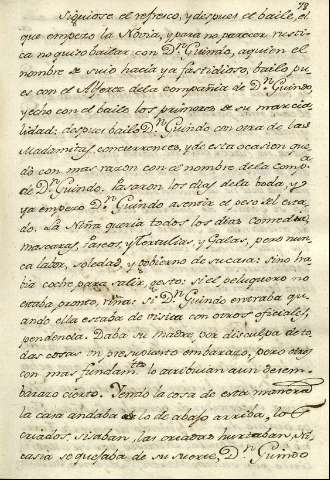 78
Siguiose el refresco, y despues el baile, el
que empezo la Novia, y para no parecer rusti-
ca no quiso bailar con Dn. Guindo, aquien el
nombre de suio hacía ya fastidioso, bailo, pu-
es con el Alferez de la compañia de Dn. Guindo,
y echo con el baile los primores de su marcia-
lidad: despues bailo Dn. Guindo con otra de las
Madamitas concurrentes, y de esta ocasion que-
dò con mas razon con el nombre de la comp.a
de Dn. Guindo. Pasaron los dias de la boda, y
ya empezo Dn. Guindo a sentir el peso del esta-
do. La Niña queria todos los dias comedias,
mascaras, Paseos, y Tertulias, y Galas, pero nun-
ca labor, soledad, y gobierno de su casa: Sino ha-
bia coche para salir, gesto: si el peluquero no
estaba pronto, riña: Si Dn. Guindo entraba qu-
ando ella estaba de visita con otros oficiales,
pendencia. Daba su madre, por disculpa de to-
das cosas un presupuesto embarazo, pero otros
con mas fundam.to lo atribuian a un desem-
barazo cierto. Yendo la cosa de esta manera
la casa andaba lo de abajo arriba, los
criados, sisaban, las criadas hurtaban, Ni-
casia se quejaba de su suerte, Dn. Guindo